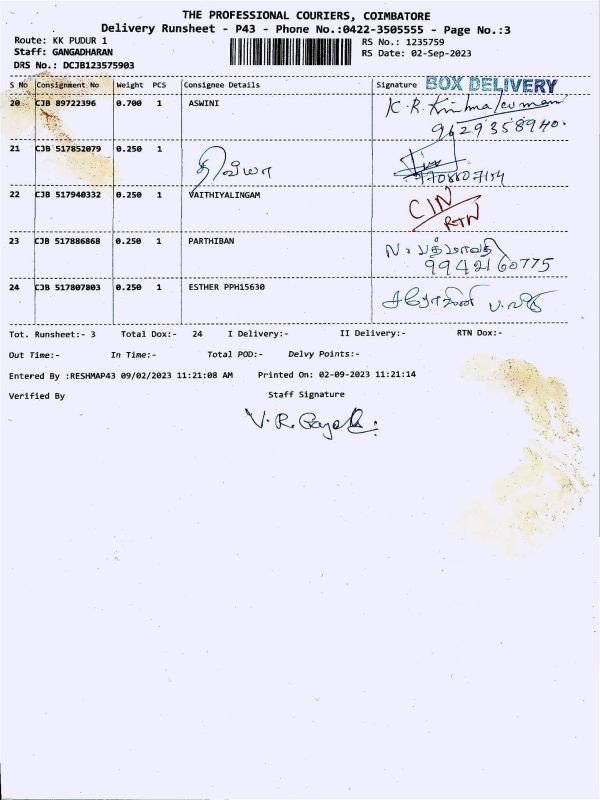 THE PROFESSIONAL COURIERS, COIMBATORE
Delivery Runsheet - P43 - Phone No.:0422-3505555 - Page No.:3
Route: KK PUDUR 1 RS No.: 1235759
Staff: GANGADHARAN RS Date: 02-Sep-2023
DRS No.: DCJB123575903
S No Consignment No Weight PCS Consignee Details Signature BOX DELIVERY
20 CJB 89722396 0.700 1 ASWINI K.R. Krishnakumar
9629358940.
21 CJB 517852079 0.250 1 திவ்யா
22 CJB 517940332 0.250 1 VAITHIYALINGAM CIN
RTN
23 CJB 517886868 0.250 1 PARTHIBAN N. பத்மாவதி
9942160775
24 CJB 517807803 0.250 1 ESTHER PPH15630 சரோஜினி
Tot. Runsheet:- 3 Total Dox:- 24 I Delivery:- II Delivery:- RTN Dox:-
Out Time:- In Time:- Total POD:- Delvy Points:-
Entered By :RESHMAP43 09/02/2023 11:21:08 AM Printed On: 02-09-2023 11:21:14
Verified By Staff Signature
V.R.